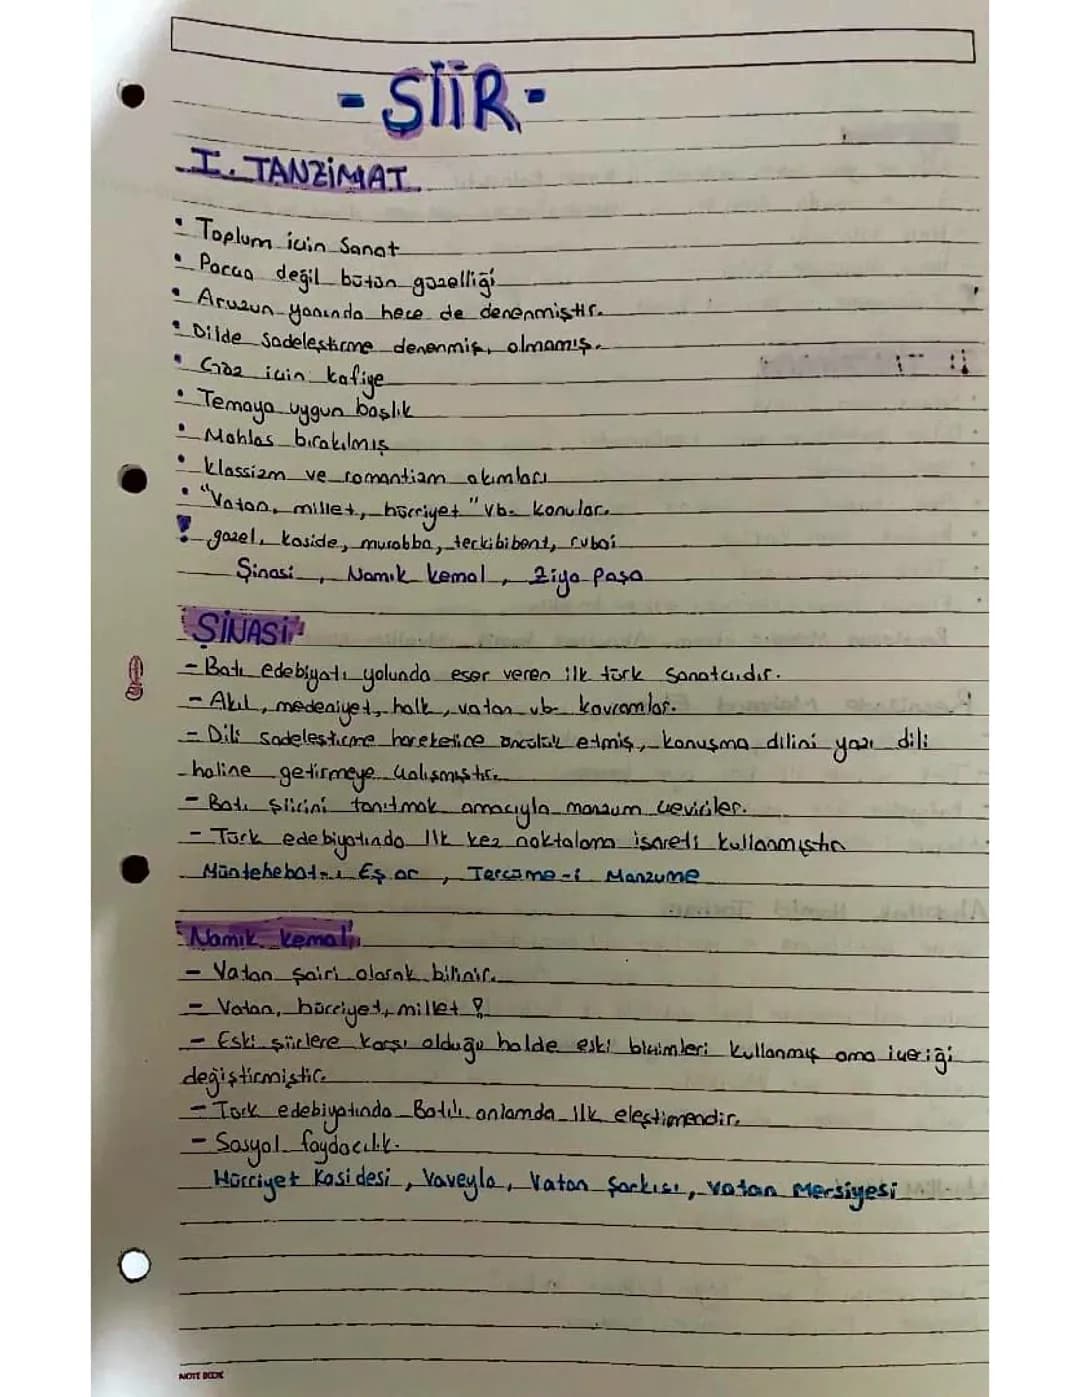 - ŞİİR -
I. TANZİMAT
• Toplum için Sanat
• Parça değil bütün güzelliği
• Aruzun yanında hece de denenmiştir.
• Dilde sadeleştirme denenmiş, olmamış.
• Göz için kafiye
• Temaya uygun başlık
• Mahlas bırakılmış
• klassizm ve romantizm akımları
• "Vatan, millet, hürriyet" vb. konular.
! gazel, kaside, murabba, terkibibent, rubai
Şinasi, Namık kemal, Ziya Paşa
ŞİNASİ
- Batı edebiyatı yolunda eser veren ilk türk sanatçıdır.
- Akıl, medeniyet, halk, vatan vb. kavramlar.
- Dili sadeleştirme hareketine öncülük etmiş, konuşma dilini yazı dili
haline getirmeye çalışmıştır.
- Batı şiirini tanıtmak amacıyla manzum çeviriler.
- Türk edebiyatında İlk kez noktalama işareti kullanmıştır
Müntehebat-ı Eş ar, Tercüme-i Manzume
Namık kemal
- Vatan şairi olarak bilinir.
- Vatan, hürriyet, millet !
- Eski şiirlere karşı olduğu halde eski biçimleri kullanmış ama içeriği
değiştirmiştir.
- Türk edebiyatında Batılı anlamda ilk eleştirmendir.
- Sosyal faydacılık.
Hürriyet Kasidesi, Vaveyla, Vatan Şarkısı, Vatan Mersiyesi
NOTE BOOK